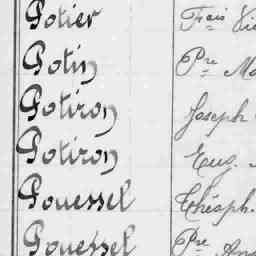 Potier Frois
Potin Pre
Potiron Joseph
Potiron Eug.
Pouessel Théoph.
Pouessel Pre